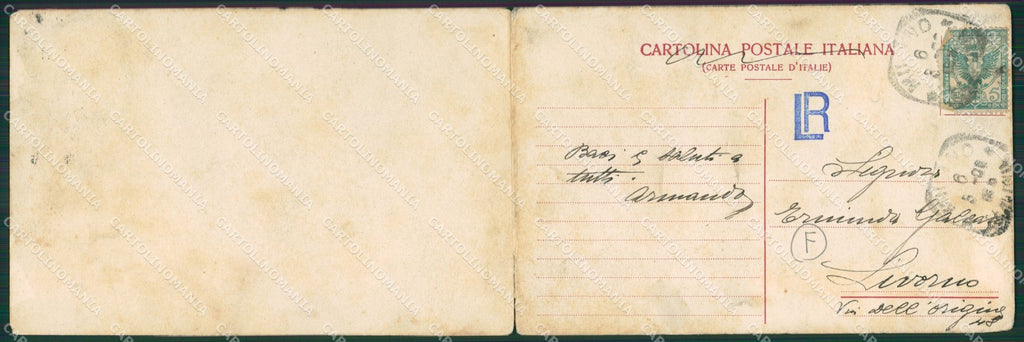 CARTOLINA POSTALE ITALIANA
(CARTE POSTALE D'ITALIE)
LR
Baci e saluti a
tutti.
Armando
Erminda
F
Livorno
Via dell'origine
48
CARTOLINOMANIA